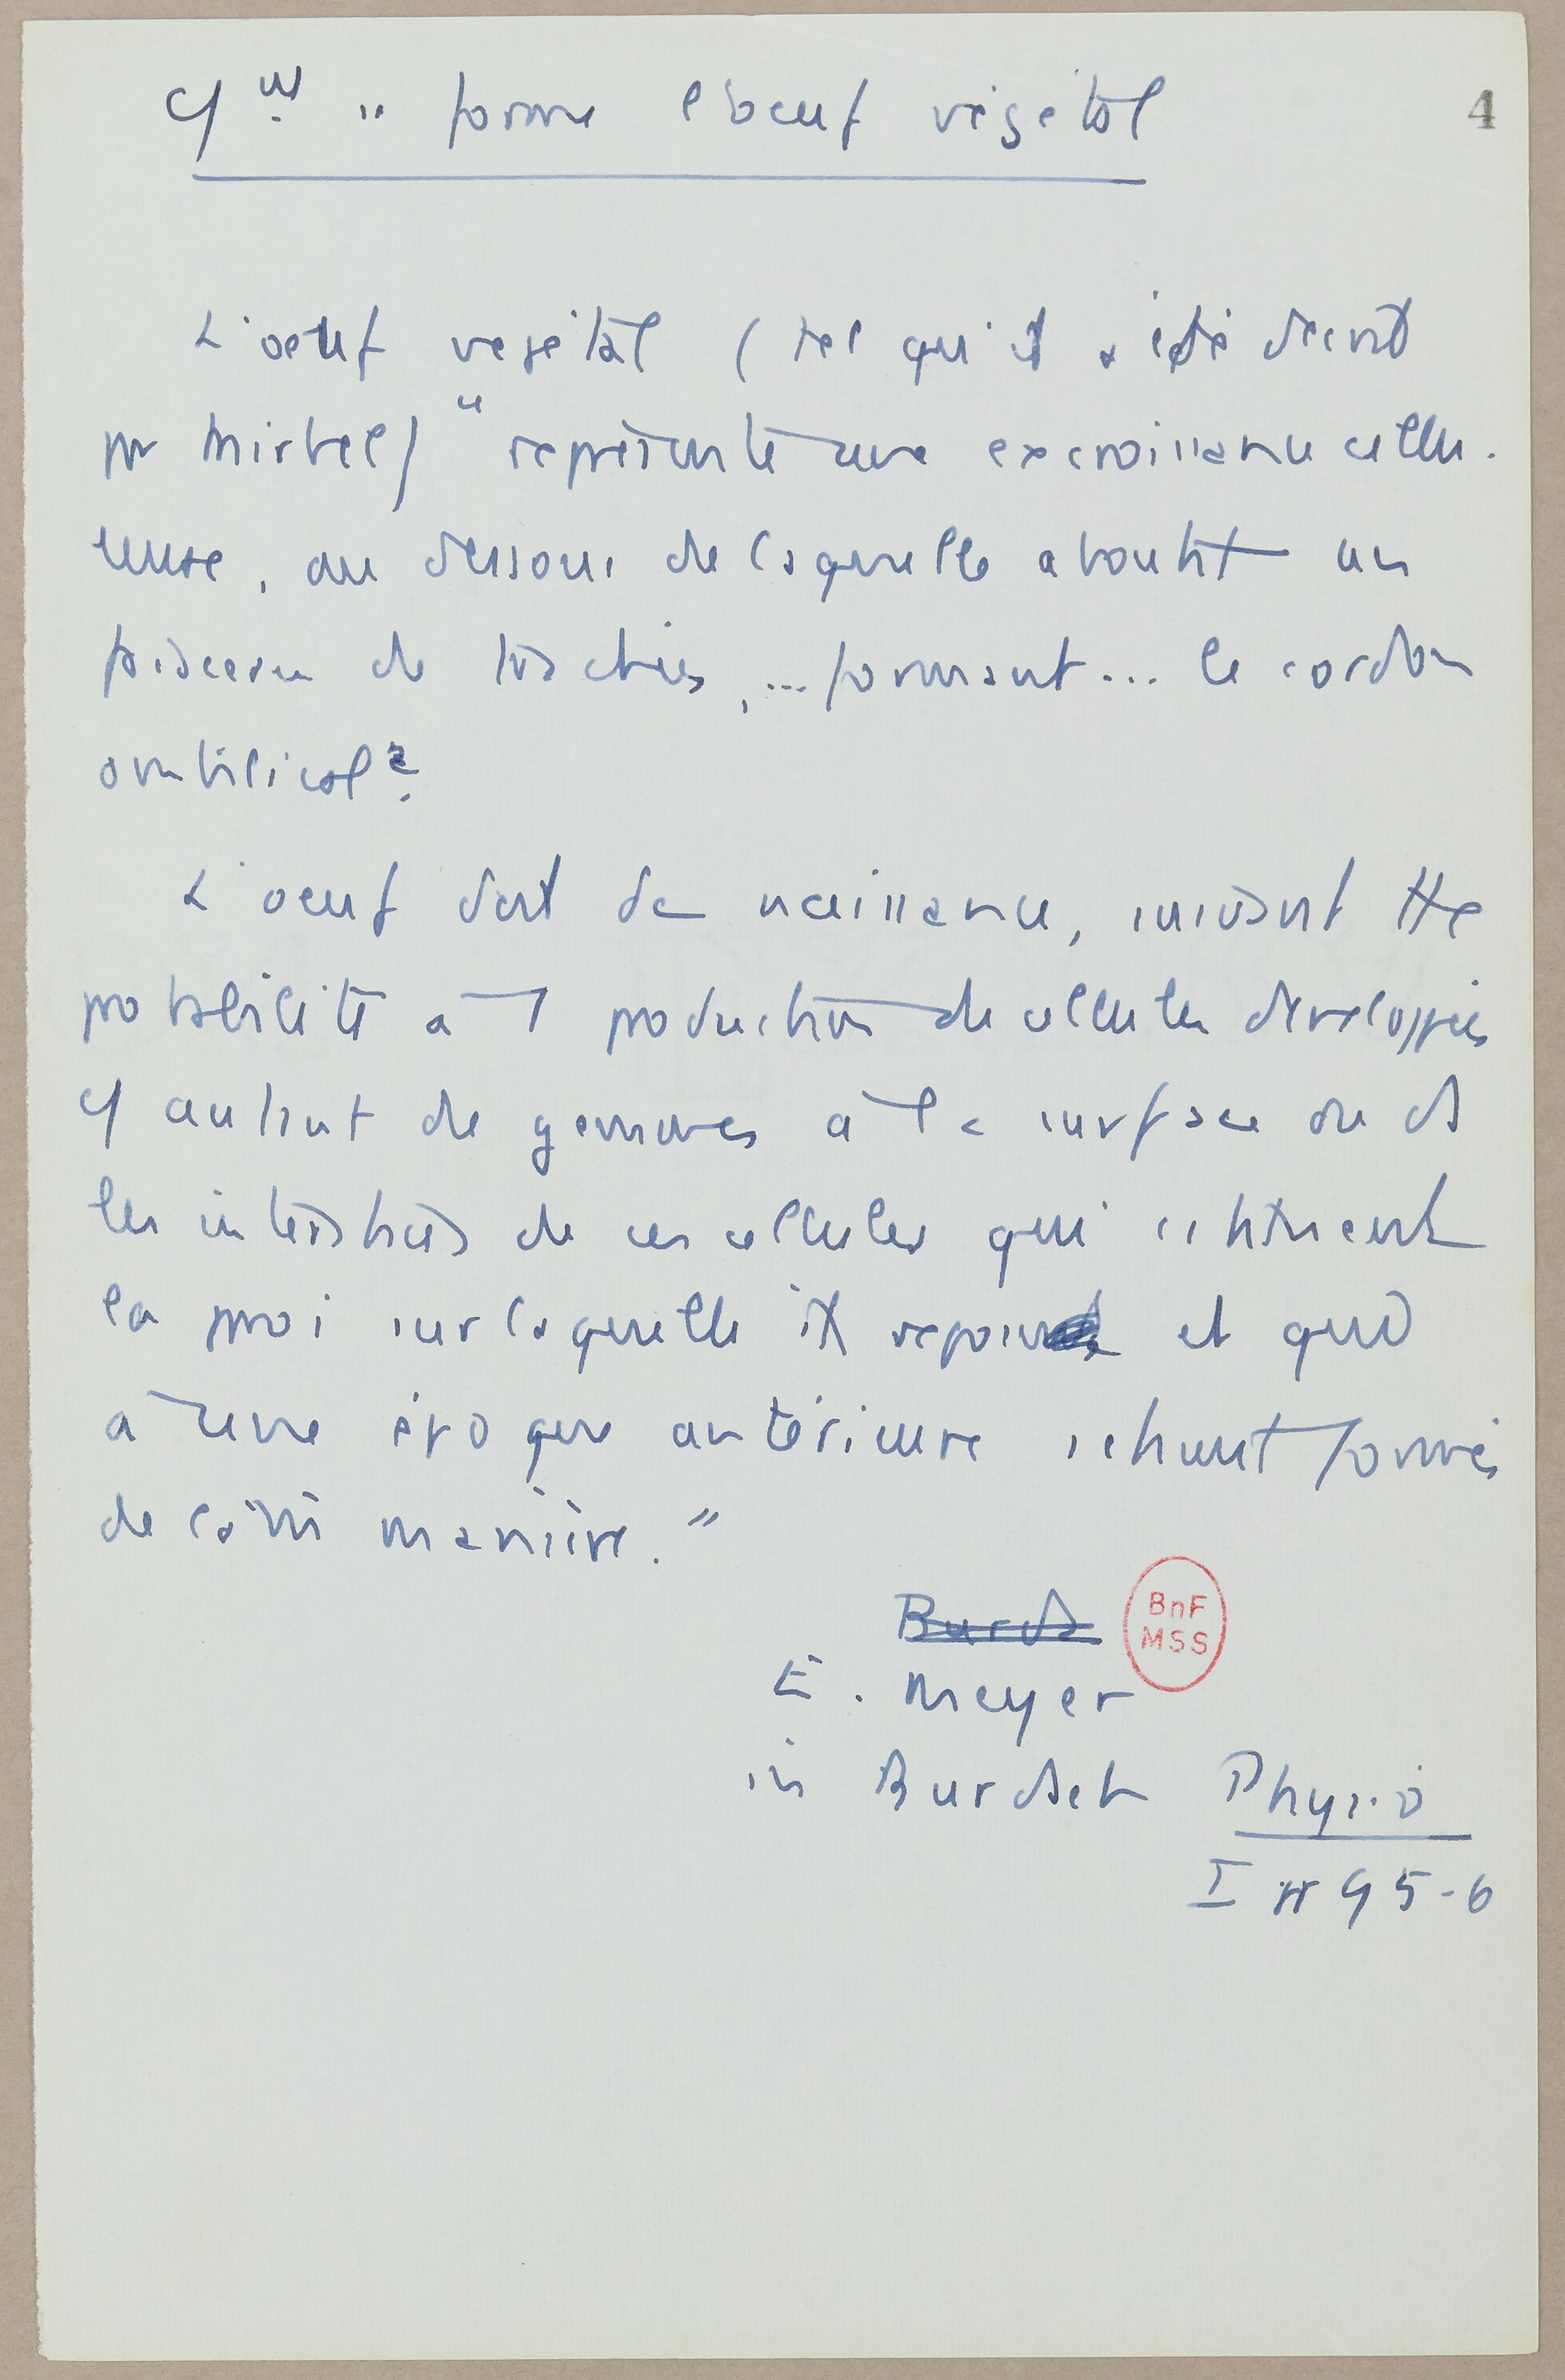 4
forme l'oeuf végétal
L'oeuf végétal (tel qu'il a été décrit
par Mirbel) "représente une excroissance cellu-
leuse, au dessous de laquelle aboutit un
faisceau de trachées, ... formant ... le cordon
ombilical.
L'oeuf doit sa naissance, suivant tte
probabilité à la production de cellules développées
autant de gemmes à la surface ou ds
les interstices de ces cellules qui constituent
la paroi sur laquelle il repose et qui
à une époque antérieure s'étaient formées
de la même manière."
Burda
E. Meyer
in Burdach Physio
I 95-6
BnF
MSS